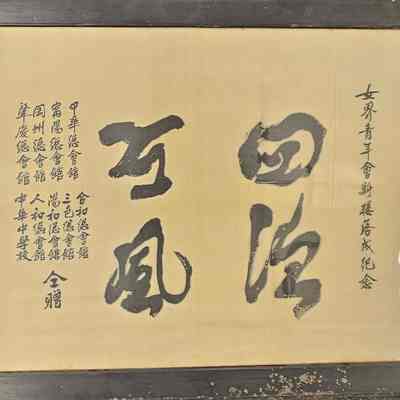 女界青年會新樓落成紀念
四德
可風
中華總會館
甯陽總會館
岡州總會館
肇慶總會館
合和總會館
三邑總會館
陽和總會館
人和總會館
中華中學校
仝贈